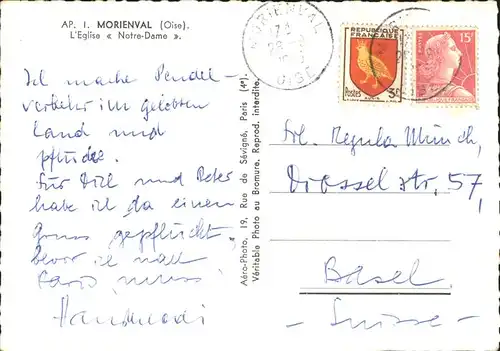 AP. 1. MORIENVAL (Oise).
L'Eglise « Notre-Dame ».
Ich mache Pendel-
verkehr im gelobten
Land und
pflücke.
Für Dich und Peter
habe ich da einen
Gruss gepflückt,
bevor ich nach
Paris muss.
Aéro-Photo, 19, Rue de Sévigné, Paris (4e).
Véritable Photo au Bromure, Reprod. interdite.
MORIENVAL
OISE
REPUBLIQUE
FRANÇAISE
Postes
3F
15F
Frl. Regula Münch,
Drosselstr. 57,
Basel
- Suisse -